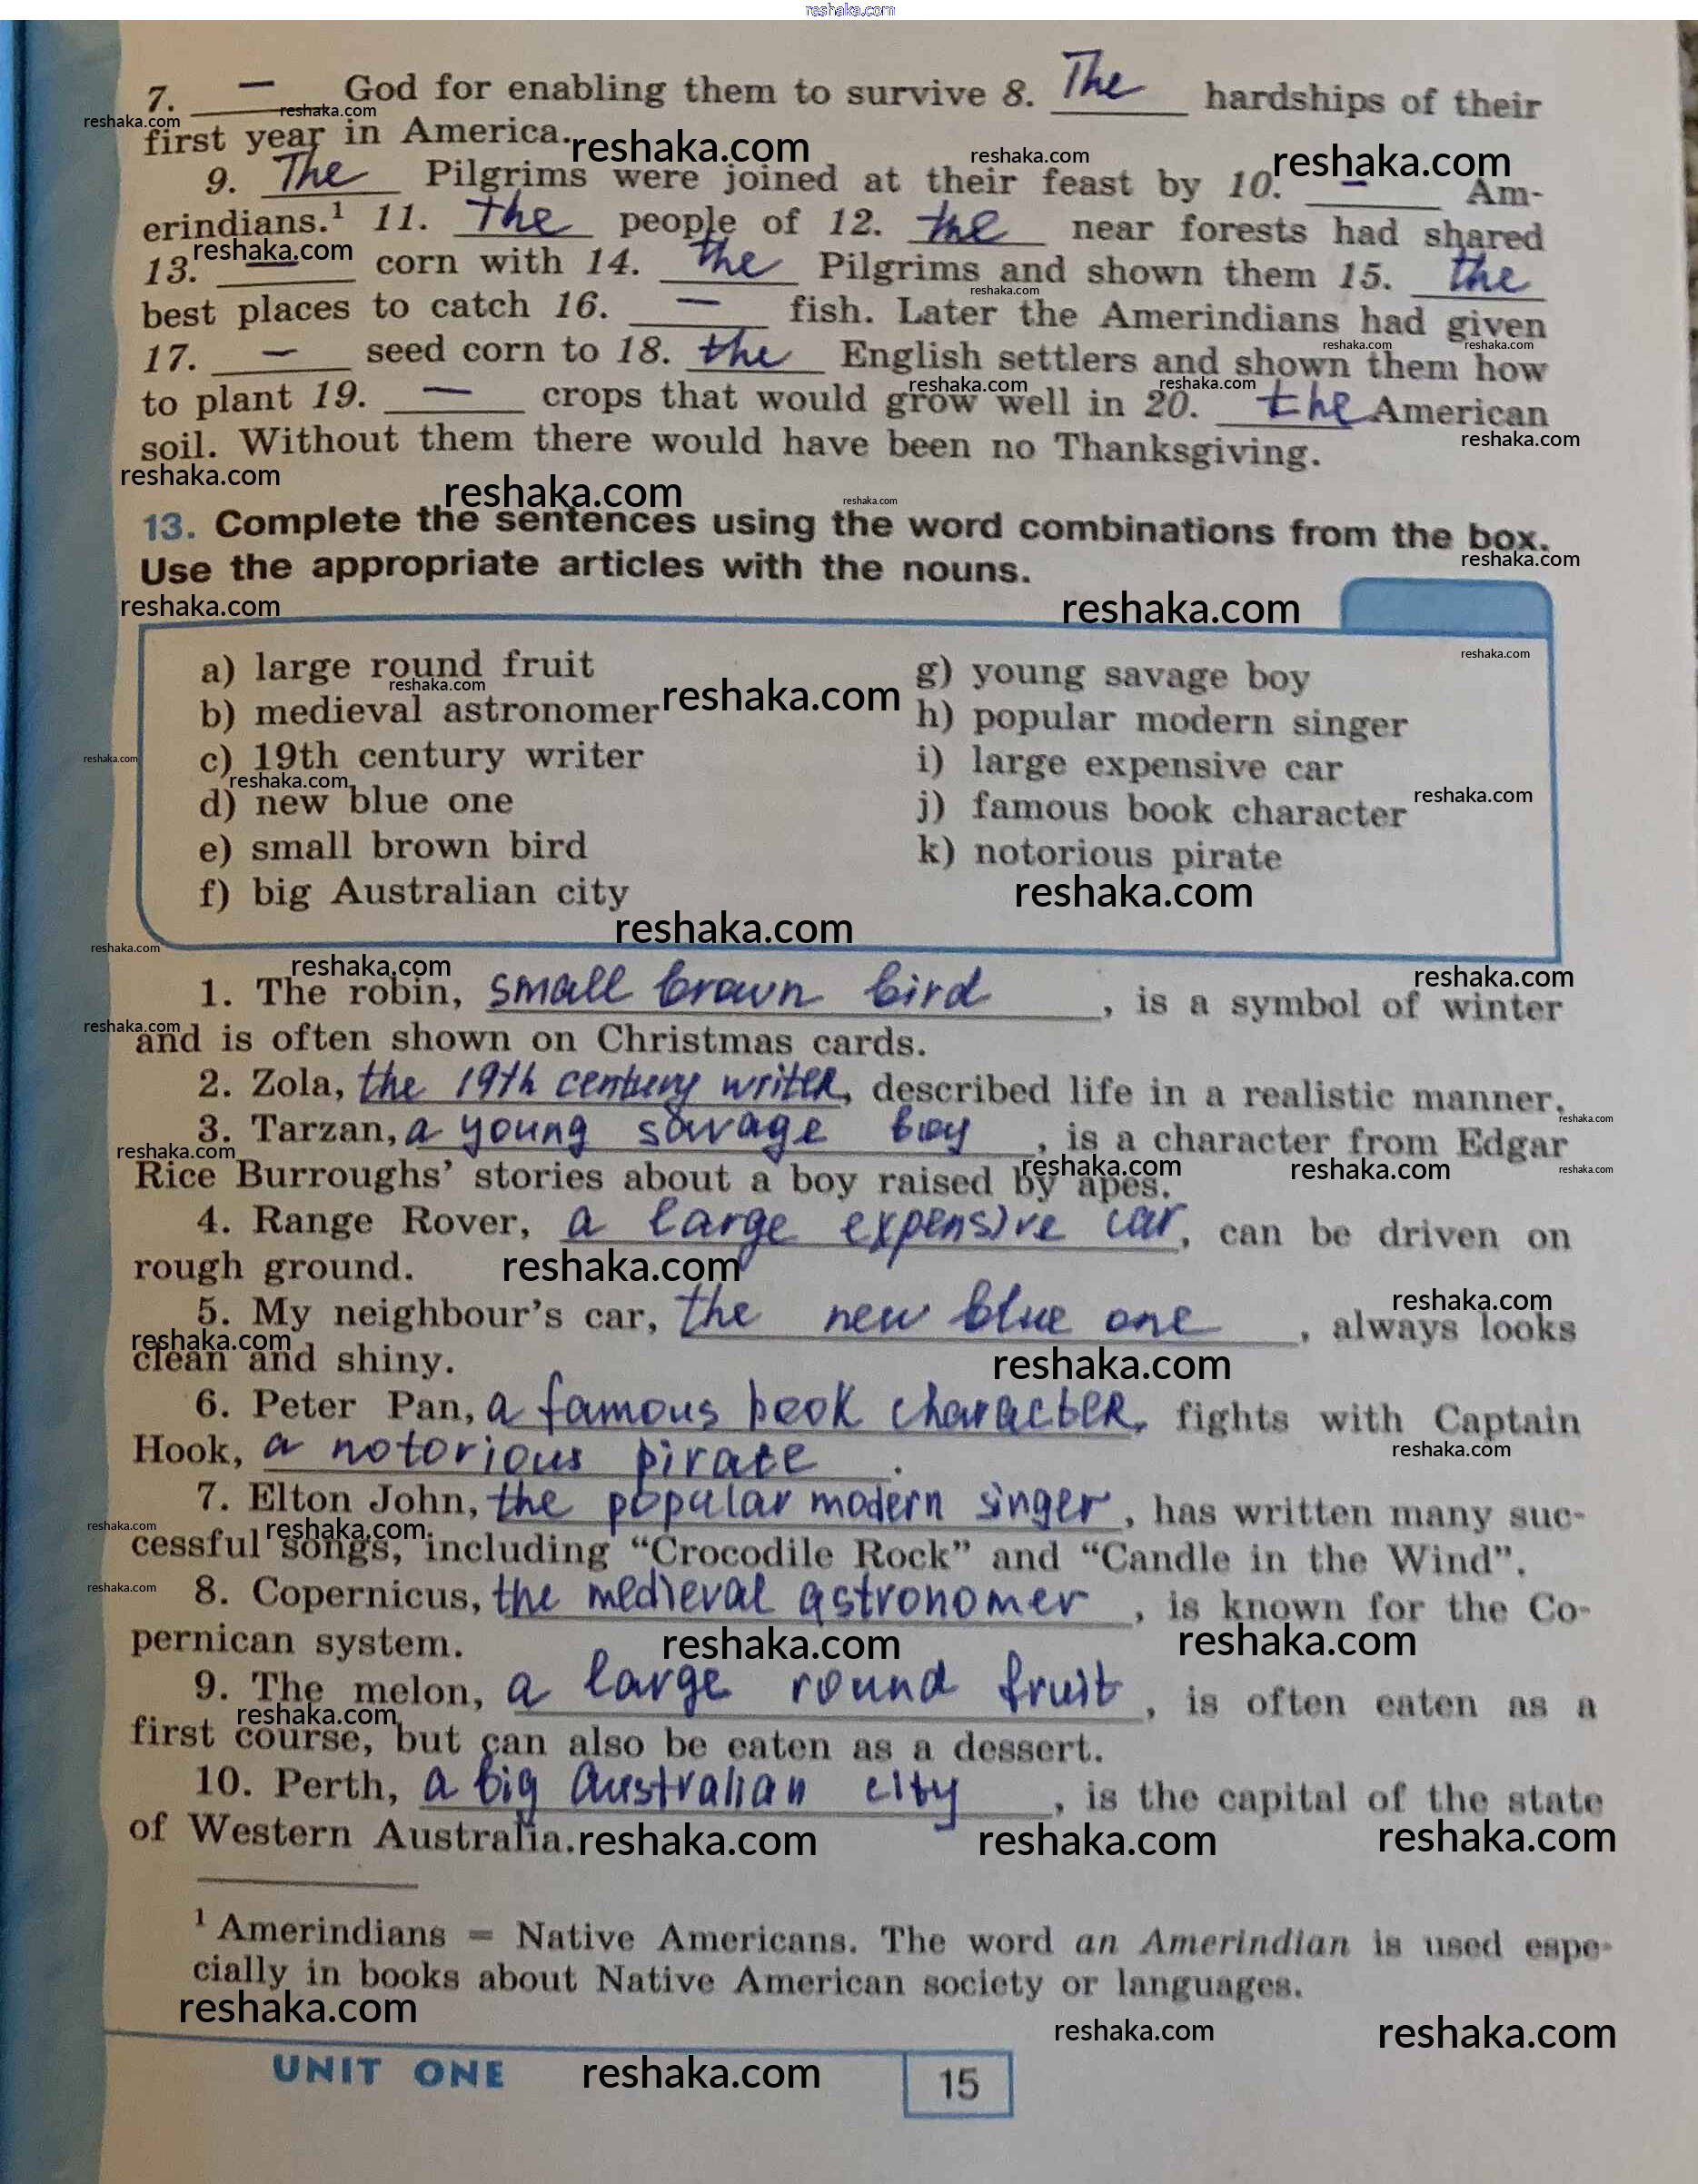 reshaka.com
7. — God for enabling them to survive 8. The hardships of their
first year in America.
9. The Pilgrims were joined at their feast by 10. — Am-
erindians.¹ 11. the people of 12. the near forests had shared
13. — corn with 14. the Pilgrims and shown them 15. the
best places to catch 16. — fish. Later the Amerindians had given
17. — seed corn to 18. the English settlers and shown them how
to plant 19. — crops that would grow well in 20. the American
soil. Without them there would have been no Thanksgiving.
13. Complete the sentences using the word combinations from the box.
Use the appropriate articles with the nouns.
a) large round fruit
b) medieval astronomer
c) 19th century writer
d) new blue one
e) small brown bird
f) big Australian city
g) young savage boy
h) popular modern singer
i) large expensive car
j) famous book character
k) notorious pirate
1. The robin, small brown bird, is a symbol of winter
and is often shown on Christmas cards.
2. Zola, the 19th century writer, described life in a realistic manner.
3. Tarzan, a young savage boy, is a character from Edgar
Rice Burroughs’ stories about a boy raised by apes.
4. Range Rover, a large expensive car, can be driven on
rough ground.
5. My neighbour’s car, the new blue one, always looks
clean and shiny.
6. Peter Pan, a famous book character, fights with Captain
Hook, a notorious pirate.
7. Elton John, the popular modern singer, has written many suc-
cessful songs, including “Crocodile Rock” and “Candle in the Wind”.
8. Copernicus, the medieval astronomer, is known for the Co-
pernican system.
9. The melon, a large round fruit, is often eaten as a
first course, but can also be eaten as a dessert.
10. Perth, a big Australian city, is the capital of the state
of Western Australia.
¹ Amerindians = Native Americans. The word an Amerindian is used espe-
cially in books about Native American society or languages.
UNIT ONE
15